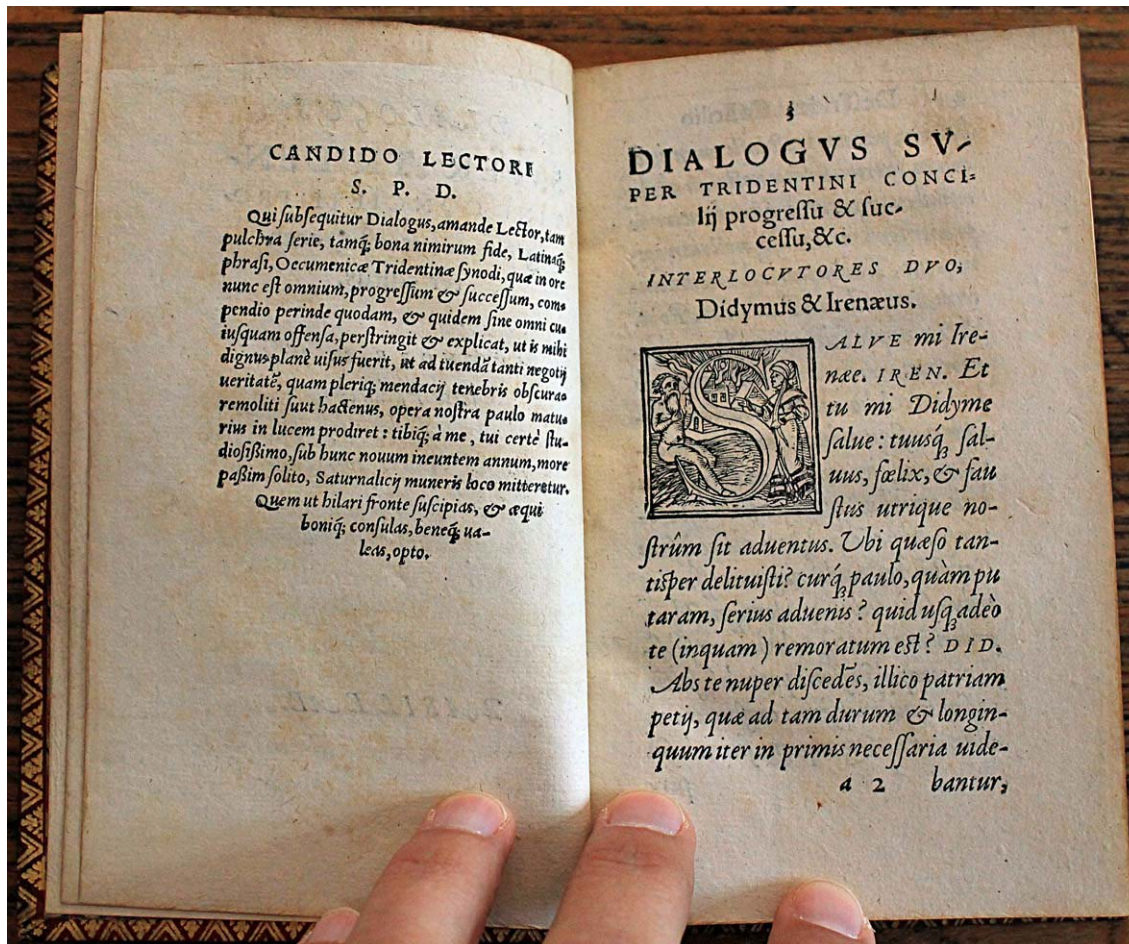 CANDIDO LECTORI
S. P. D.
Qui ſubſequitur Dialogus, amande Lector, tam
pulchra ſerie, tamq́; bona nimirum fide, Latinaq́;
phraſi, Oecumenicæ Tridentinæ ſynodi, quæ in ore
nunc eſt omnium, progreſſum & ſucceſſum, com⸗
pendio perinde quodam, & quidem ſine omni cu⸗
iuſquam offenſa, perſtringit & explicat, ut is mihi
dignus planè uiſus fuerit, ut ad tuendā tanti negotij
ueritatē, quam pleriq; mendacij tenebris obſcura⸗
remoliti ſunt hactenus, opera noſtra paulo matu⸗
rius in lucem prodiret : tibiq́; à me , tui certè ſtu⸗
dioſiſsimo, ſub hunc nouum ineuntem annum, more
paſsim ſolito, Saturnalicij muneris loco mitteretur.
Quem ut hilari fronte ſuſcipias, & æqui
boniq́; conſulas, beneq́; ua-
leas, opto.
3
DIALOGVS SV-
PER TRIDENTINI CONCI⸗
lij progreſſu & ſuc-
ceſſu, &c.
INTERLOCVTORES DVO,
Didymus & Irenæus.
SALVE mi Ire-
næe. IREN. Et
tu mi Didyme
ſalue : tuusq́; ſal-
uus, fœlix, & fau
ſtus utrique no-
ſtrûm ſit aduentus. Ubi quæſo tan-
tiſper delituiſti? curq́; paulo, quàm pu
taram, ſerius aduenis ? quid uſq; adeò
te (inquam) remoratum eſt? DID.
Abs te nuper diſcedēs, illico patriam
petij, quæ ad tam durum & longin-
quum iter in primis neceſſaria uide-
a 2 bantur,